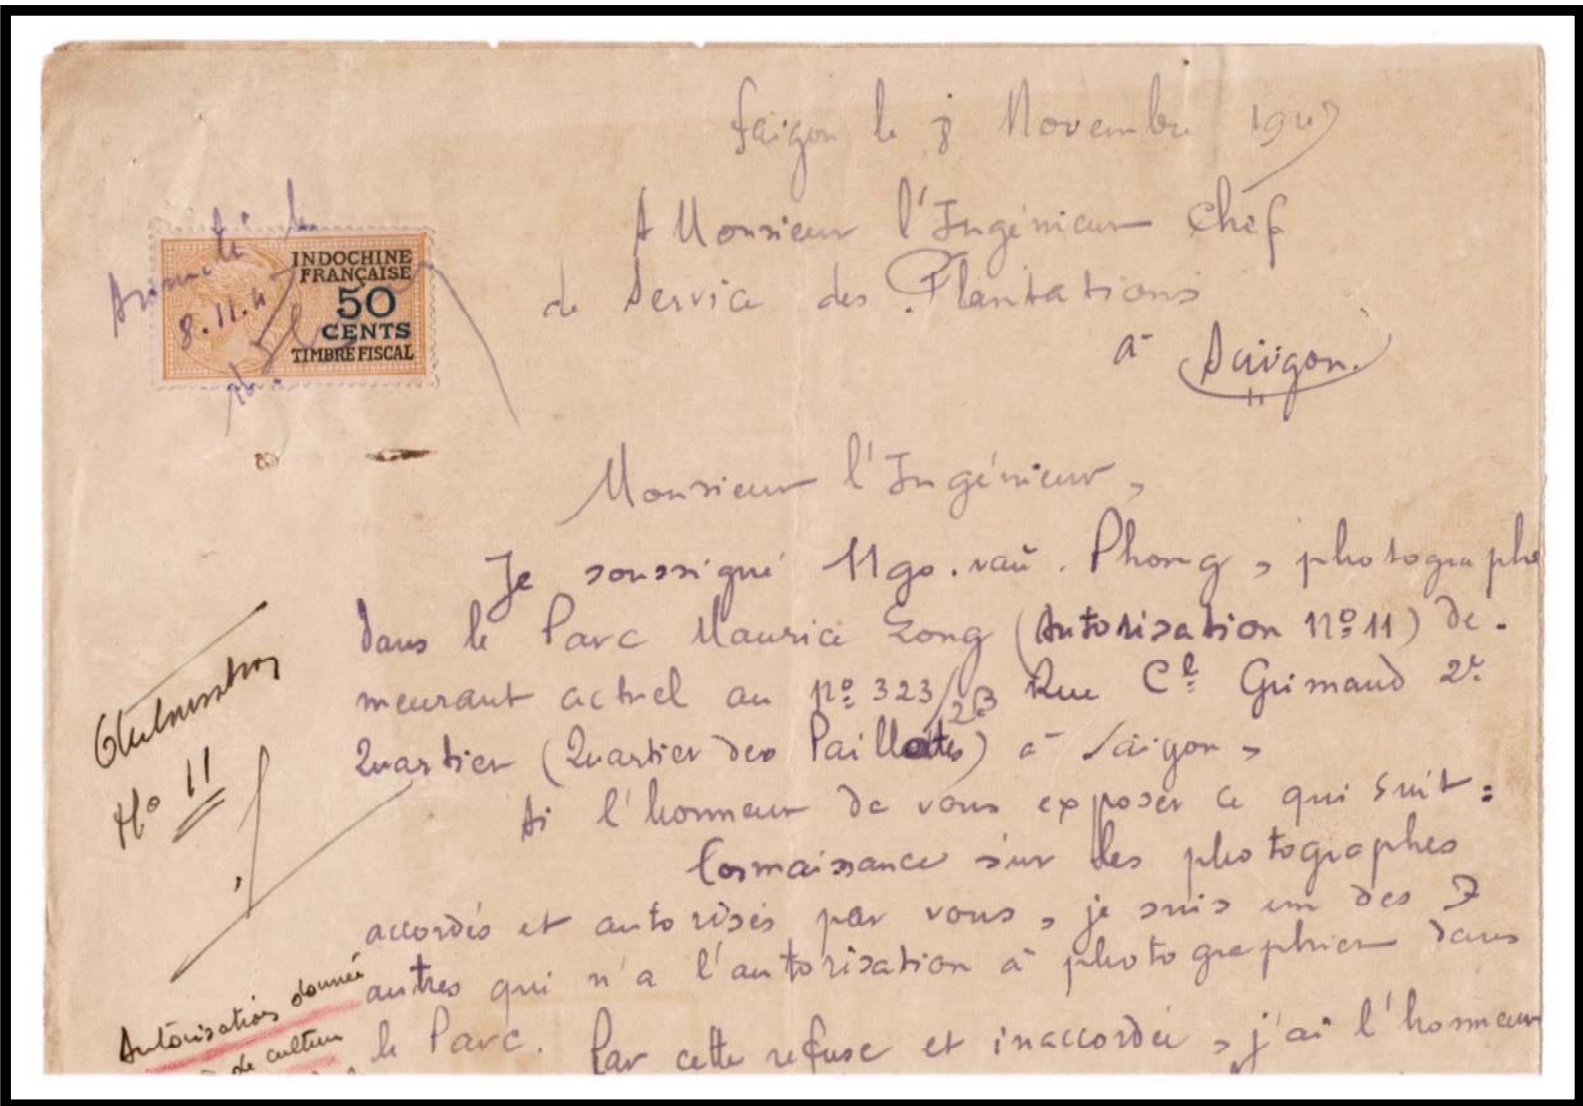 Saigon le 8 Novembre 194
A Monsieur l'Ingénieur Chef
de Service des Plantations
à Saigon.
8.11.4
INDOCHINE
FRANÇAISE
50
CENTS
TIMBRE FISCAL
Monsieur l'Ingénieur,
Je soussigné Ngo.van.Phong, photographe
dans le Parc Maurice Long (Autorisation Nº 11) de-
meurant actuel au Nº 323/23 Rue Cl Grimaud 2e
Quartier (Quartier des Paillotes) à Saigon,
Ai l'honneur de vous exposer ce qui suit:
Connaissance sur les photographes
accordés et autorisés par vous, je suis un des 7
autres qui n'a l'autorisation à photographier dans
le Parc. Par cette refuse et inaccordée, j'ai l'honneur
Autorisation
No 11
Autorisation donnée
de culture